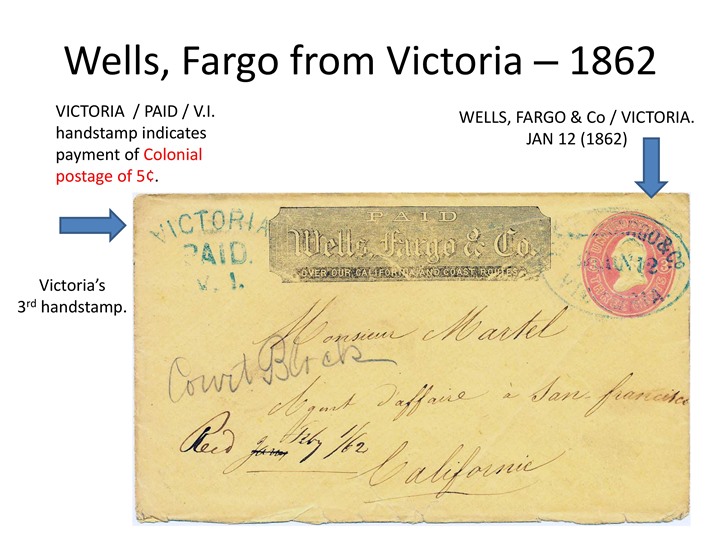 Wells, Fargo from Victoria – 1862
VICTORIA / PAID / V.I.
handstamp indicates
payment of Colonial
postage of 5¢.
WELLS, FARGO & Co / VICTORIA.
JAN 12 (1862)
Victoria's
3rd handstamp.
VICTORIA
PAID.
V. I.
PAID
Wells, Fargo & Co.
OVER OUR CALIFORNIA AND COAST ROUTES
FARGO & Co
JAN 12
VICTORIA.
Monsieur Martel
Court Block
Agent d'affaire à San-francisco
Recd Feby 1/62
Californie